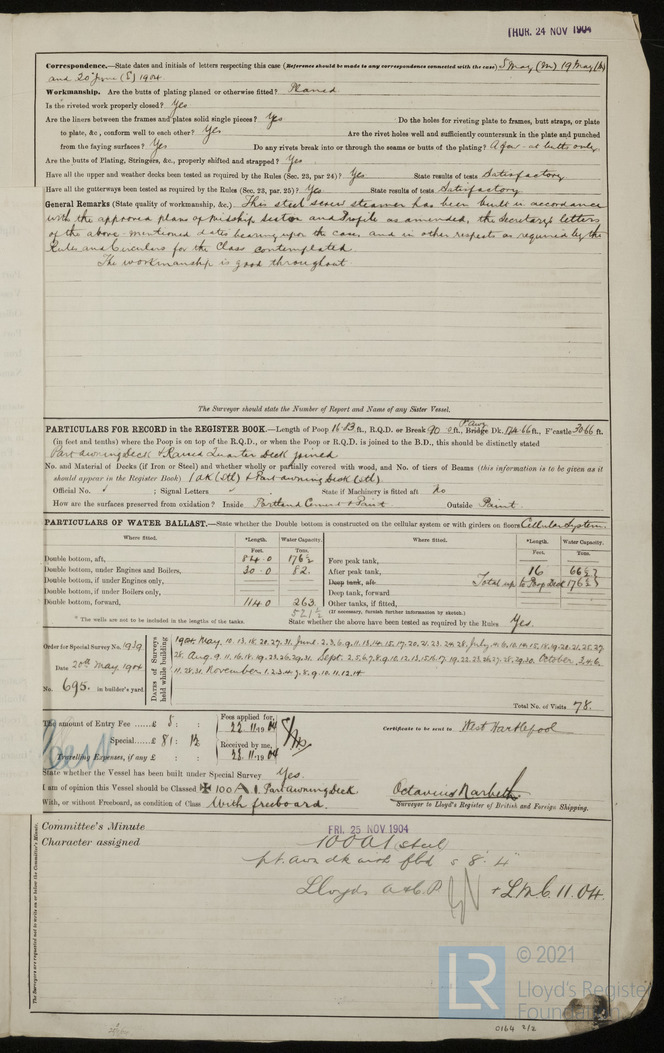 THUR. 24 NOV 1904
Correspondence.—State dates and initials of letters respecting this case (Reference should be made to any correspondence connected with the case) 5 May (M) 19 May (M)
and 20 June (S) 1904.
Workmanship. Are the butts of plating planed or otherwise fitted? Planed
Is the riveted work properly closed? Yes
Are the liners between the frames and plates solid single pieces? Yes Do the holes for riveting plate to frames, butt straps, or plate
to plate, &c., conform well to each other? Yes Are the rivet holes well and sufficiently countersunk in the plate and punched
from the faying surfaces? Yes Do any rivets break into or through the seams or butts of the plating? A few at butts only.
Are the butts of Plating, Stringers, &c., properly shifted and strapped? Yes
Have all the upper and weather decks been tested as required by the Rules (Sec. 23, par 24)? Yes State results of tests Satisfactory
Have all the gutterways been tested as required by the Rules (Sec. 23, par. 25)? Yes State results of tests Satisfactory
General Remarks (State quality of workmanship, &c.) This steel screw steamer has been built in accordance
with the approved plans of Midship Section and Profile as amended, the Secretary's letters
of the above mentioned dates bearing upon the case, and in other respects as required by the
Rules and Circulars for the Class contemplated.
The workmanship is good throughout.
The Surveyor should state the Number of Report and Name of any Sister Vessel.
PARTICULARS FOR RECORD in the REGISTER BOOK.—Length of Poop 16.83 ft., R.Q.D. or Break 90.0 ft., P. awg Bridge Dk. 174.66 ft., F'castle 30.66 ft.
(in feet and tenths) where the Poop is on top of the R.Q.D., or when the Poop or R.Q.D. is joined to the B.D., this should be distinctly stated
Part awning Deck & Raised Quarter Deck joined
No. and Material of Decks (if Iron or Steel) and whether wholly or partially covered with wood, and No. of tiers of Beams (this information is to be given as it
should appear in the Register Book) 1 dk (stl) & Part awning Deck (stl)
Official No. ; Signal Letters State if Machinery is fitted aft No
How are the surfaces preserved from oxidation? Inside Portland Cement & Paint Outside Paint.
PARTICULARS OF WATER BALLAST.—State whether the Double bottom is constructed on the cellular system or with girders on floors Cellular System.
Where fitted. *Length. Water Capacity. Where fitted. *Length. Water Capacity.
Feet. Tons. Feet. Tons.
Double bottom, aft, 84.0 176½ Fore peak tank,
Double bottom, under Engines and Boilers, 30.0 82. After peak tank, 16 66½
Double bottom, if under Engines only, Deep tank, aft. Total up to Poop Deck 176½
Double bottom, if under Boilers only, Deep tank, forward
Double bottom, forward, 114.0 263. Other tanks, if fitted,
521½ (If necessary, furnish further information by sketch.)
* The wells are not to be included in the lengths of the tanks. State whether the above have been tested as required by the Rules Yes.
Order for Special Survey No. 1919
Date 20th May 1904
No. 695. in builder's yard.
DATES of Surveys held while building
1904. May. 10. 13. 18. 20. 27. 31. June. 2. 3. 6. 9. 11. 13. 14. 15. 17. 20. 21. 23. 24. 28. July. 4. 6. 10. 14. 15. 18. 19. 20. 21. 25. 27.
28. Aug. 9. 11. 16. 18. 19. 23. 26. 29. 31. Sept. 2. 5. 6. 7. 8. 9. 10. 12. 13. 15. 16. 17. 19. 22. 23. 26. 27. 28. 29. 30. October. 3. 4. 6.
11. 28. 31. November. 1. 2. 3. 4. 7. 8. 9. 10. 11. 12. 14
Total No. of Visits 78.
The amount of Entry Fee ......£ 5 : :
Special......£ 81 : 12
Travelling Expenses, if any £ : :
Fees applied for,
22.11.1904
Received by me,
23.11.1904
Certificate to be sent to West Hartlepool
State whether the Vessel has been built under Special Survey Yes.
I am of opinion this Vessel should be Classed ✠ 100 A 1. Part Awning Deck
With, or without Freeboard, as condition of Class With freeboard.
Octavius Narbeth
Surveyor to Lloyd's Register of British and Foreign Shipping.
Committee's Minute FRI. 25 NOV. 1904
Character assigned 100A1 steel
pt. awn dk with fbd 8' 4"
Lloyds A & C.P. + L.M.C. 11.04.
The Surveyors are requested not to write on or below the Committee's Minute.
LR © 2021
Lloyd's Register
Foundation
0164 2/2